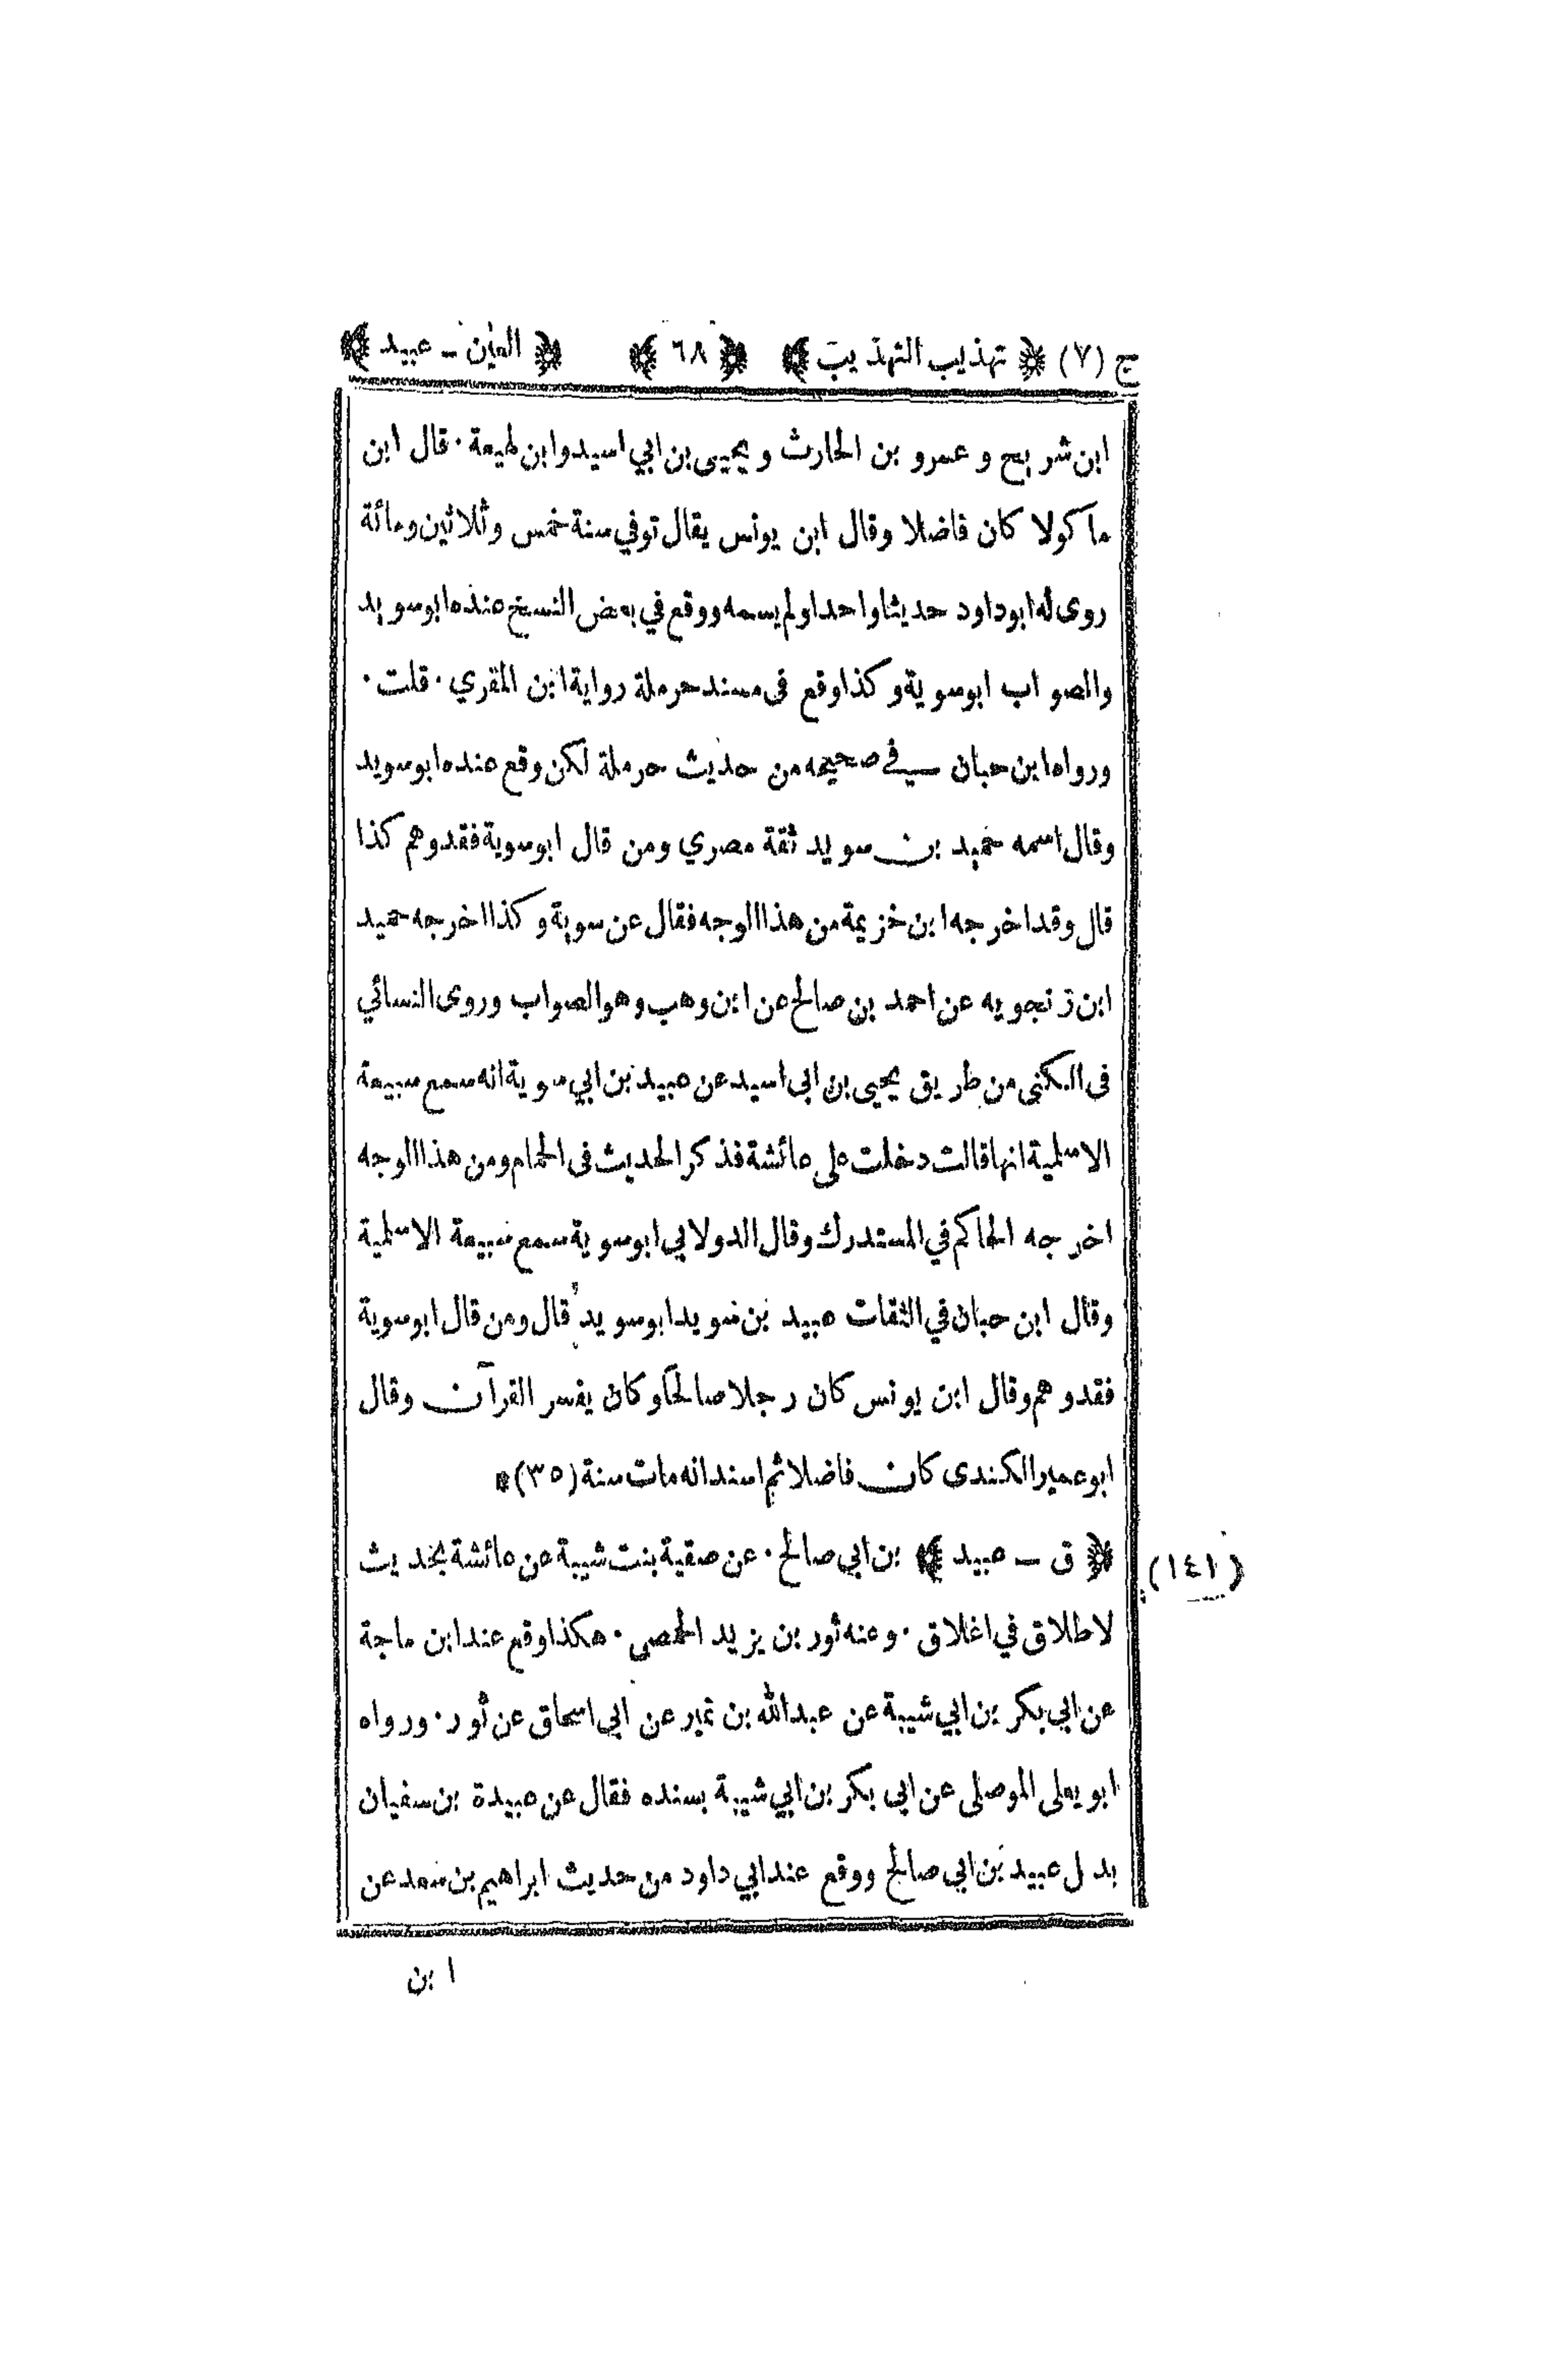 ج (٧) ﴿ تهذيب التهذيب ﴾ ﴿ ٦٨ ﴾ ﴿ العين - عبيد ﴾
ابن شريح و عمرو بن الحارث و يحيى بن ابي اسيد وابن لهيعة · قال ابن
ماكولا كان فاضلا وقال ابن يونس يقال توفي سنة خمس وثلاثين ومائة
روى له ابوداود حديثا واحدا ولم يسمه ووقع في بعض النسخ عنده ابوسويد
والصواب ابوسوية وكذا وقع في مسند حرملة رواية ابن المقري · قلت ·
ورواه ابن حبان في صحيحه من حديث حرملة لكن وقع عنده ابوسويد
وقال اسمه حميد بن سويد ثقة مصري ومن قال ابوسوية فقد وهم كذا
قال وقد اخرجه ابن خزيمة من هذا الوجه فقال عن سوية وكذا اخرجه حميد
ابن زنجويه عن احمد بن صالح عن ابن وهب وهو الصواب وروى النسائي
في الكنى من طريق يحيى بن ابى اسيد عن عبيد بن ابي سوية انه سمع سبيعة
الاسلمية انها قالت دخلت على عائشة فذكر الحديث في الحمام ومن هذا الوجه
اخرجه الحاكم في المستدرك وقال الدولابي ابوسوية سمع سبيعة الاسلمية
وقال ابن حبان في الثقات عبيد بن سويد ابوسويد قال ومن قال ابوسوية
فقد وهم وقال ابن يونس كان رجلا صالحا وكان يفسر القرآن وقال
ابوعمير الكندى كان فاضلا ثم اسند انه مات سنة (٣٥) *
﴿ ق - عبيد ﴾ بن ابي صالح · عن صفية بنت شيبة عن عائشة بحديث
(١٤١)
لا طلاق في اغلاق · وعنه ثور بن يزيد الحمصى · هكذا وقع عند ابن ماجة
عن ابي بكر بن ابي شيبة عن عبدالله بن نمير عن ابى اسحاق عن ثور · ورواه
ابو يعلى الموصلى عن ابى بكر بن ابي شيبة بسنده فقال عن عبيدة بن سفيان
بدل عبيد بن ابي صالح ووقع عند ابي داود من حديث ابراهيم بن سعد عن
ابن